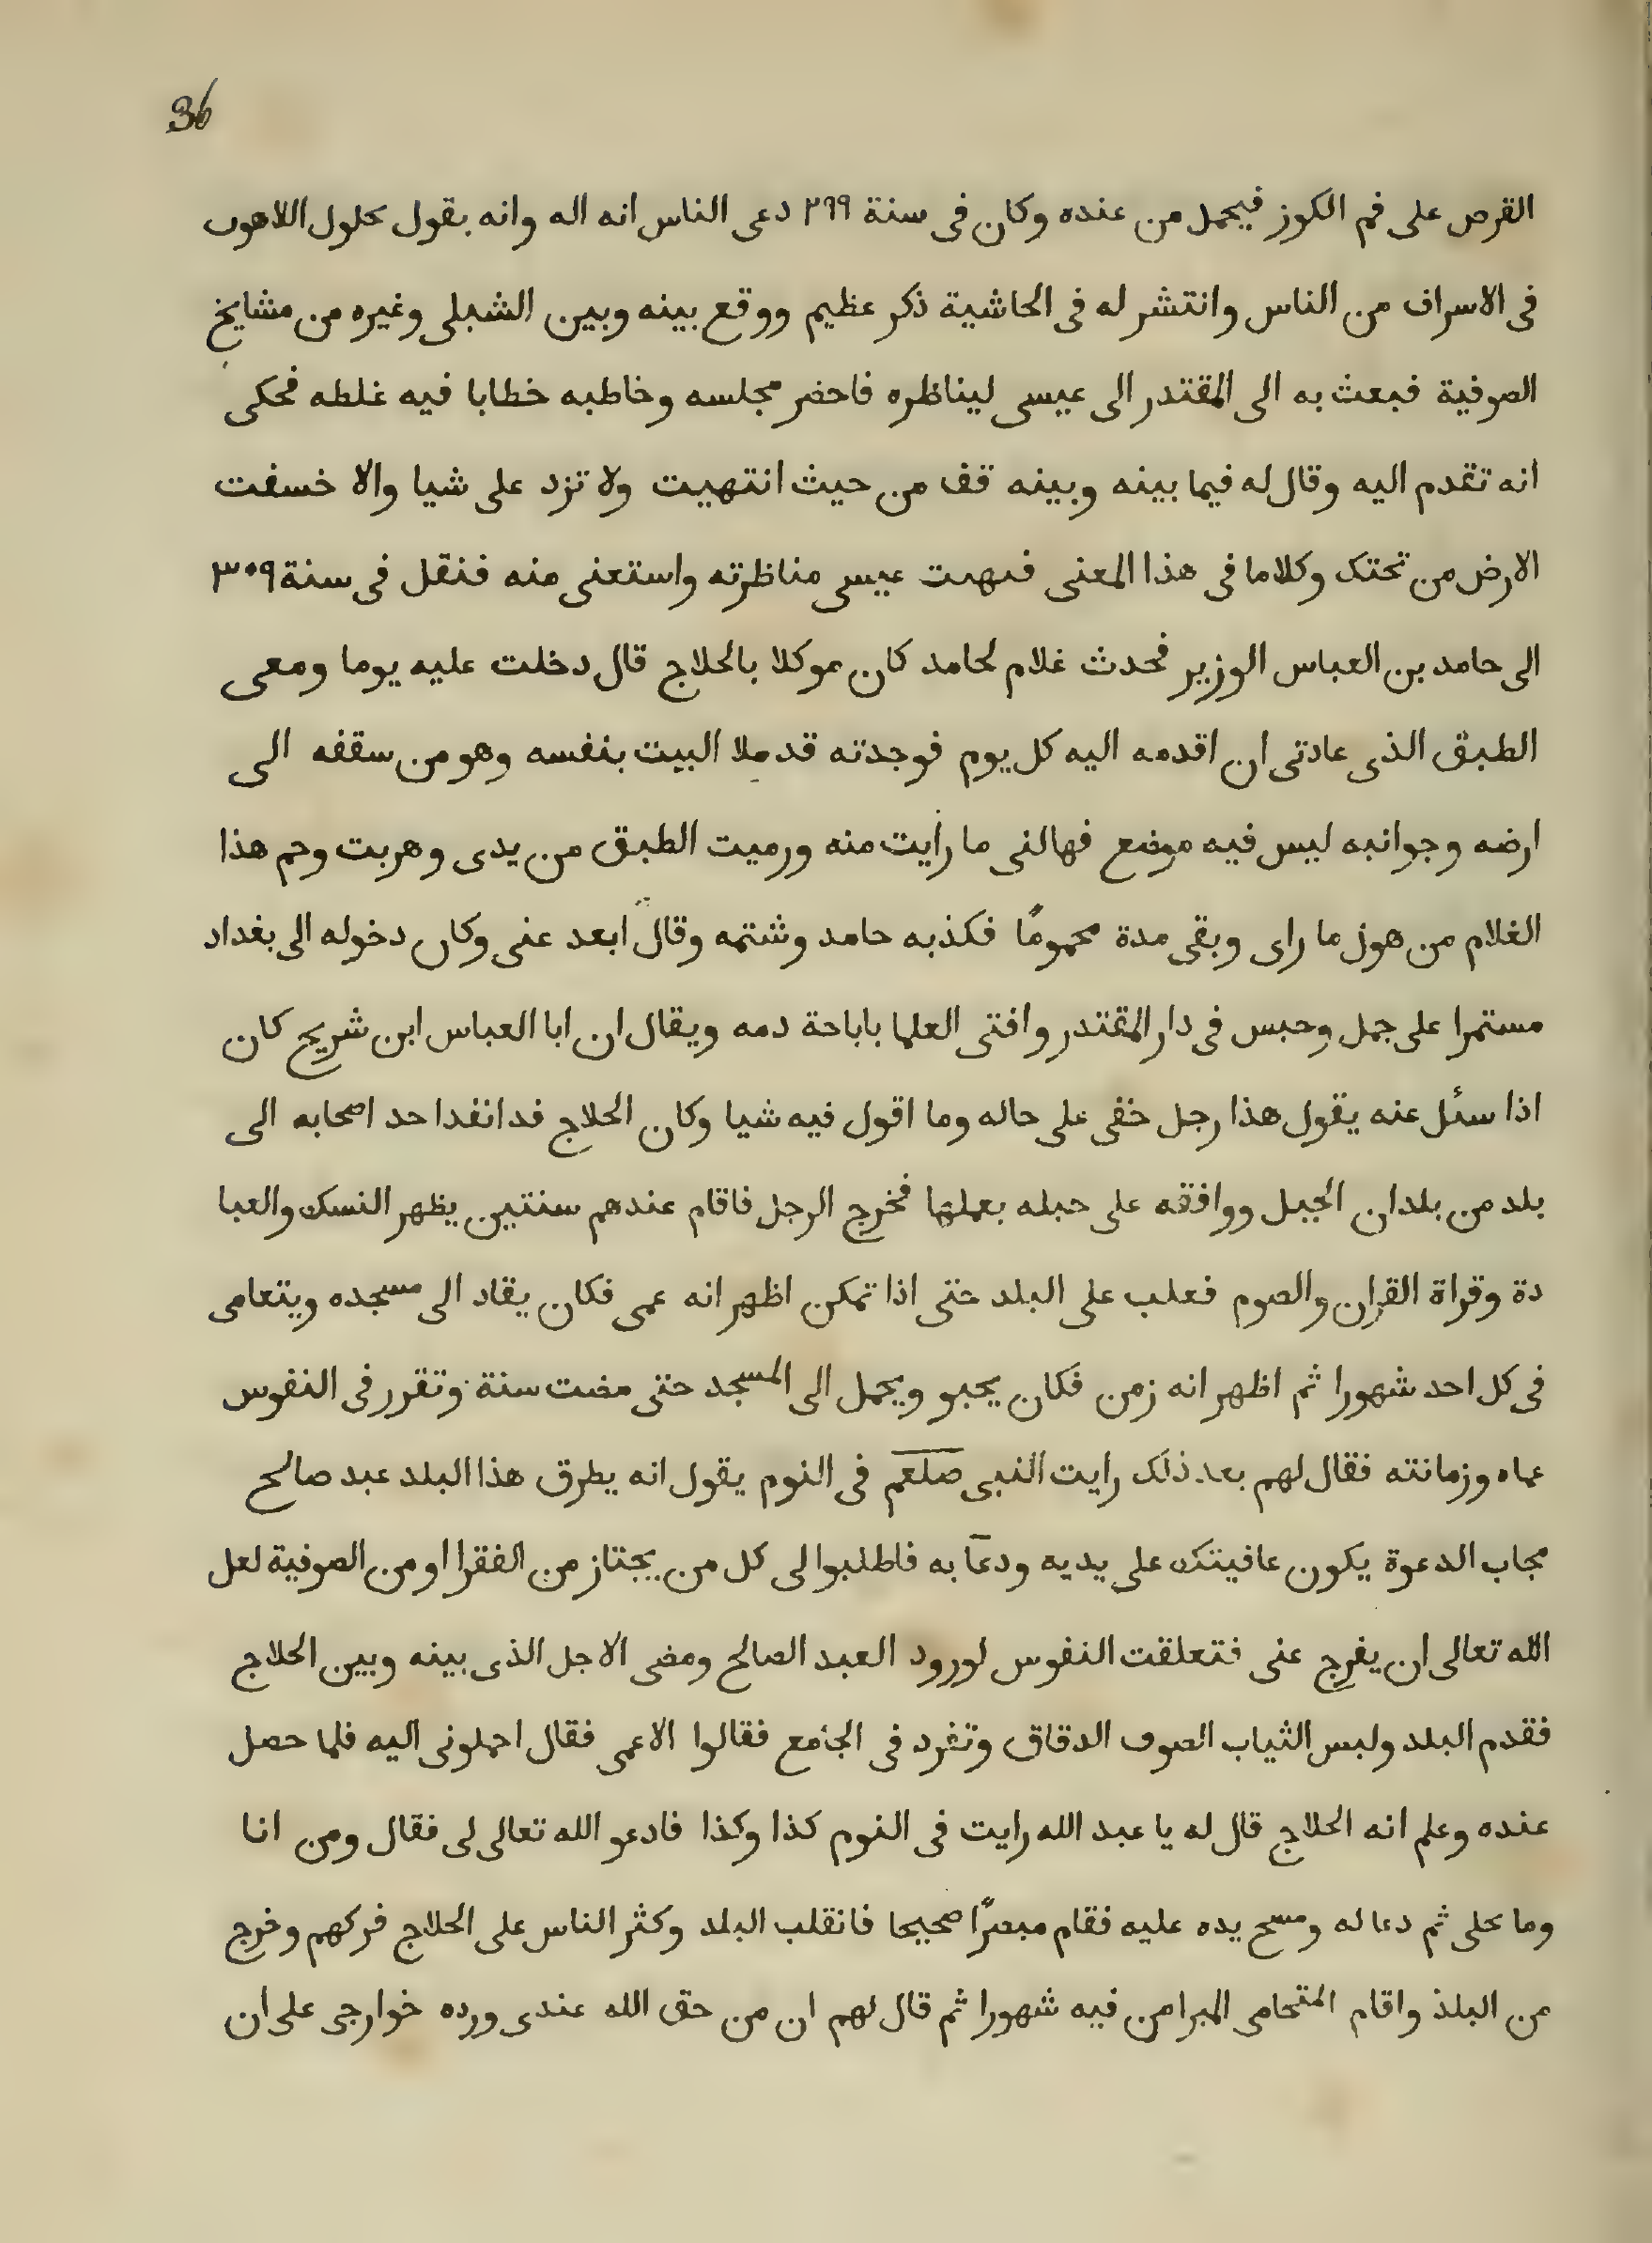 36
القرص على فم الكوز فيحمل من عنده وكان فى سنة ٢٩٩ دعى الناس انه اله وانه بقول بحلول اللاهوت
فى الاسراف من الناس وانتشر له فى الحاشية ذكر عظيم ووقع بينه وبين الشبلى وغيره من مشايخ
الصوفية فبعث به الى المقتدر الى عيسى ليناظره فاحضر مجلسه وخاطبه خطابا فيه غلطه فحكى
انه تقدم اليه وقال له فيما بينه وبينه قف من حيث انتهيت ولا تزد على شيا والا خسفت
الارض من تحتك وكلاما فى هذا المعنى فبهت عيسى مناظرته واستعنى منه فنقل فى سنة ٣٠٩
الى حامد بن العباس الوزير فحدث غلام لحامد كان موكلا بالحلاج قال دخلت عليه يوما ومعى
الطبق الذى عادتى ان اقدمه اليه كل يوم فوجدته قد ملا البيت بنفسه وهو من سقفه الى
ارضه وجوانبه ليس فيه موضع فهالنى ما رأيت منه ورميت الطبق من يدى وهربت وحم هذا
الغلام من هول ما راى وبقى مدة محمومًا فكذبه حامد وشتمه وقال ابعد عنى وكان دخوله الى بغداد
مستمرا على جمل وحبس فى دار المقتدر وافتى العلما باباحة دمه ويقال ان ابا العباس ابن شريح كان
اذا سئل عنه يقول هذا رجل خفى على حاله وما اقول فيه شيا وكان الحلاج قد انفد احد اصحابه الى
بلد من بلدان الجبل ووافقه على حبله بعملها فخرج الرجل فاقام عندهم سنتين يظهر النسك والعبا
دة وقراة القران والصوم فعلب على البلد حتى اذا تمكن اظهر انه عمى فكان يقاد الى مسجده ويتعامى
فى كل احد شهورا ثم اظهر انه زمن فكان يحبو ويحمل الى المسجد حتى مضت سنة وتقرر فى النفوس
عماه وزمانته فقال لهم بعد ذلك رايت النبى صلعم فى النوم يقول انه يطرق هذا البلد عبد صالح
مجاب الدعوة يكون عافيتك على يديه ودعآ به فاطلبوا لى كل من يجتاز من الفقرا او من الصوفية لعل
الله تعالى ان يفرج عنى فتعلقت النفوس لورود العبد الصالح ومضى الاجل الذى بينه وبين الحلاج
فقدم البلد ولبس الثياب الصوف الدقاق وتفرد فى الجامع فقالوا الاعمى فقال احملونى اليه فلما حصل
عنده وعلم انه الحلاج قال له يا عبد الله رايت فى النوم كذا وكذا فادعو الله تعالى لى فقال ومن انا
وما محلى ثم دعا له ومسح يده عليه فقام مبصرًا صحيحا فانقلب البلد وكثر الناس على الحلاج فركهم وخرج
من البلد واقام المتحامى المبرامن فيه شهورا ثم قال لهم ان من حق الله عندى ورده خوارجى على ان